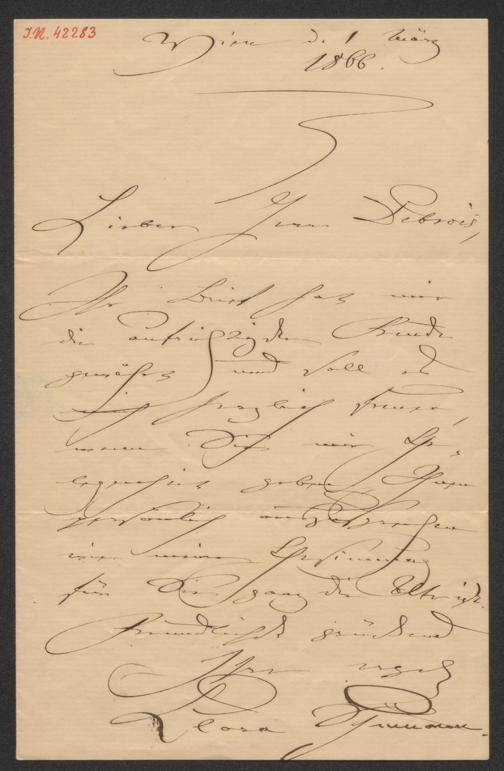 I.N. 42283
Wien d. 1 März
1866.
Lieber Herr Debrois,
Ihr Brief hat mir
die aufrichtigste Freude
gewährt und soll es
mich herzlich freuen,
wenn Sie mir Ge-
legenheit geben Ihnen
persönlich auszusprechen
wie meine Gesinnung
für Sie ganz die Alte ist.
Freundlichst grüßend
Ihre
Clara Schumann.